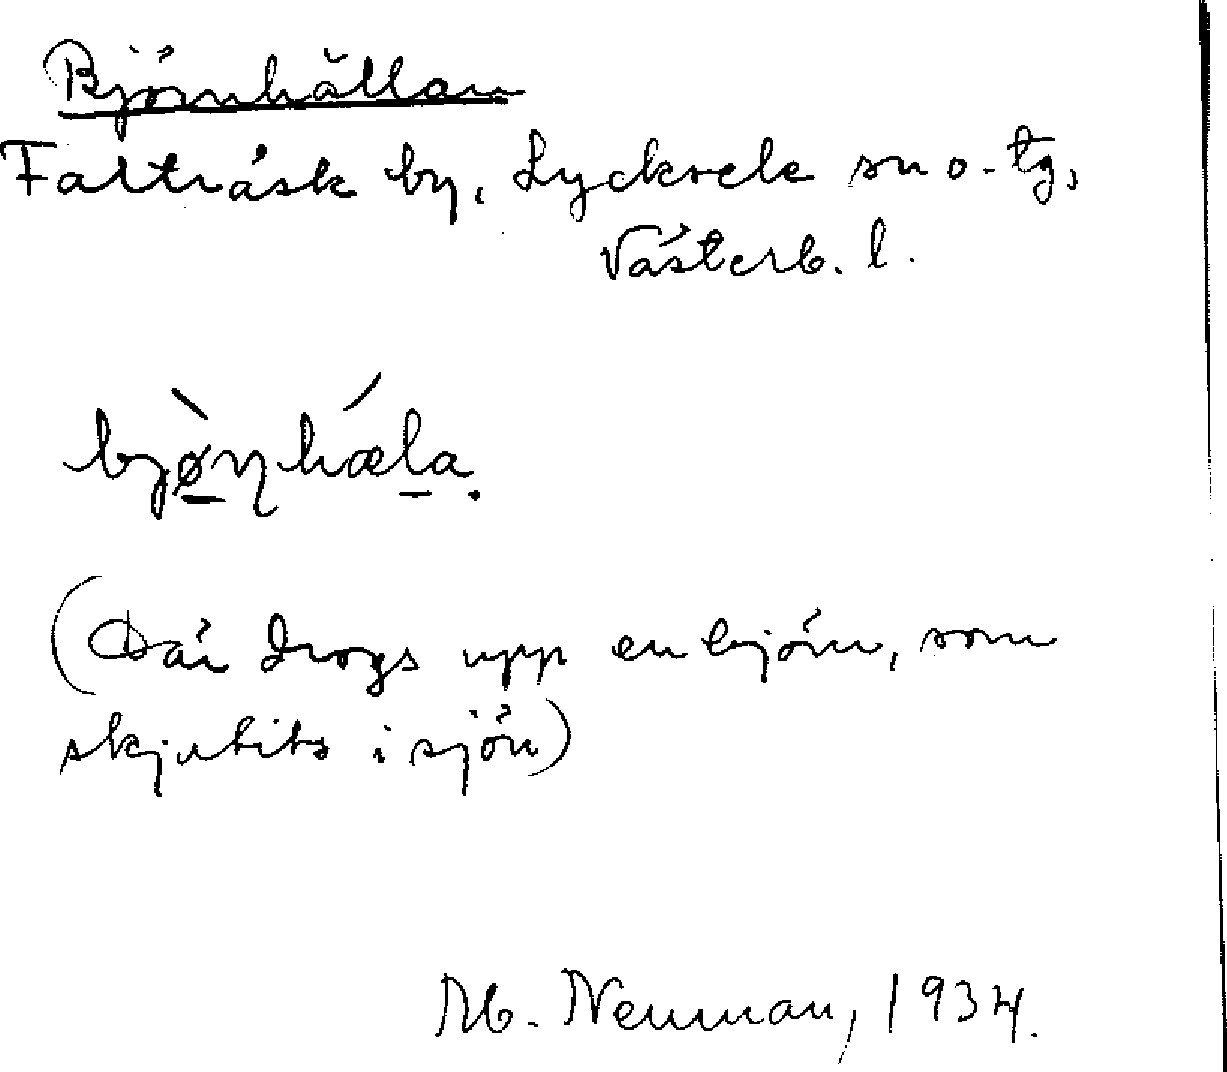 Björnhällan
Falträsk by, Lycksele sn o. tg,
Västerb. l.
bjø̀ɳhǽla.
(Där drogs upp en björn, som
skjutits i sjön)
M. Neuman, 1934.